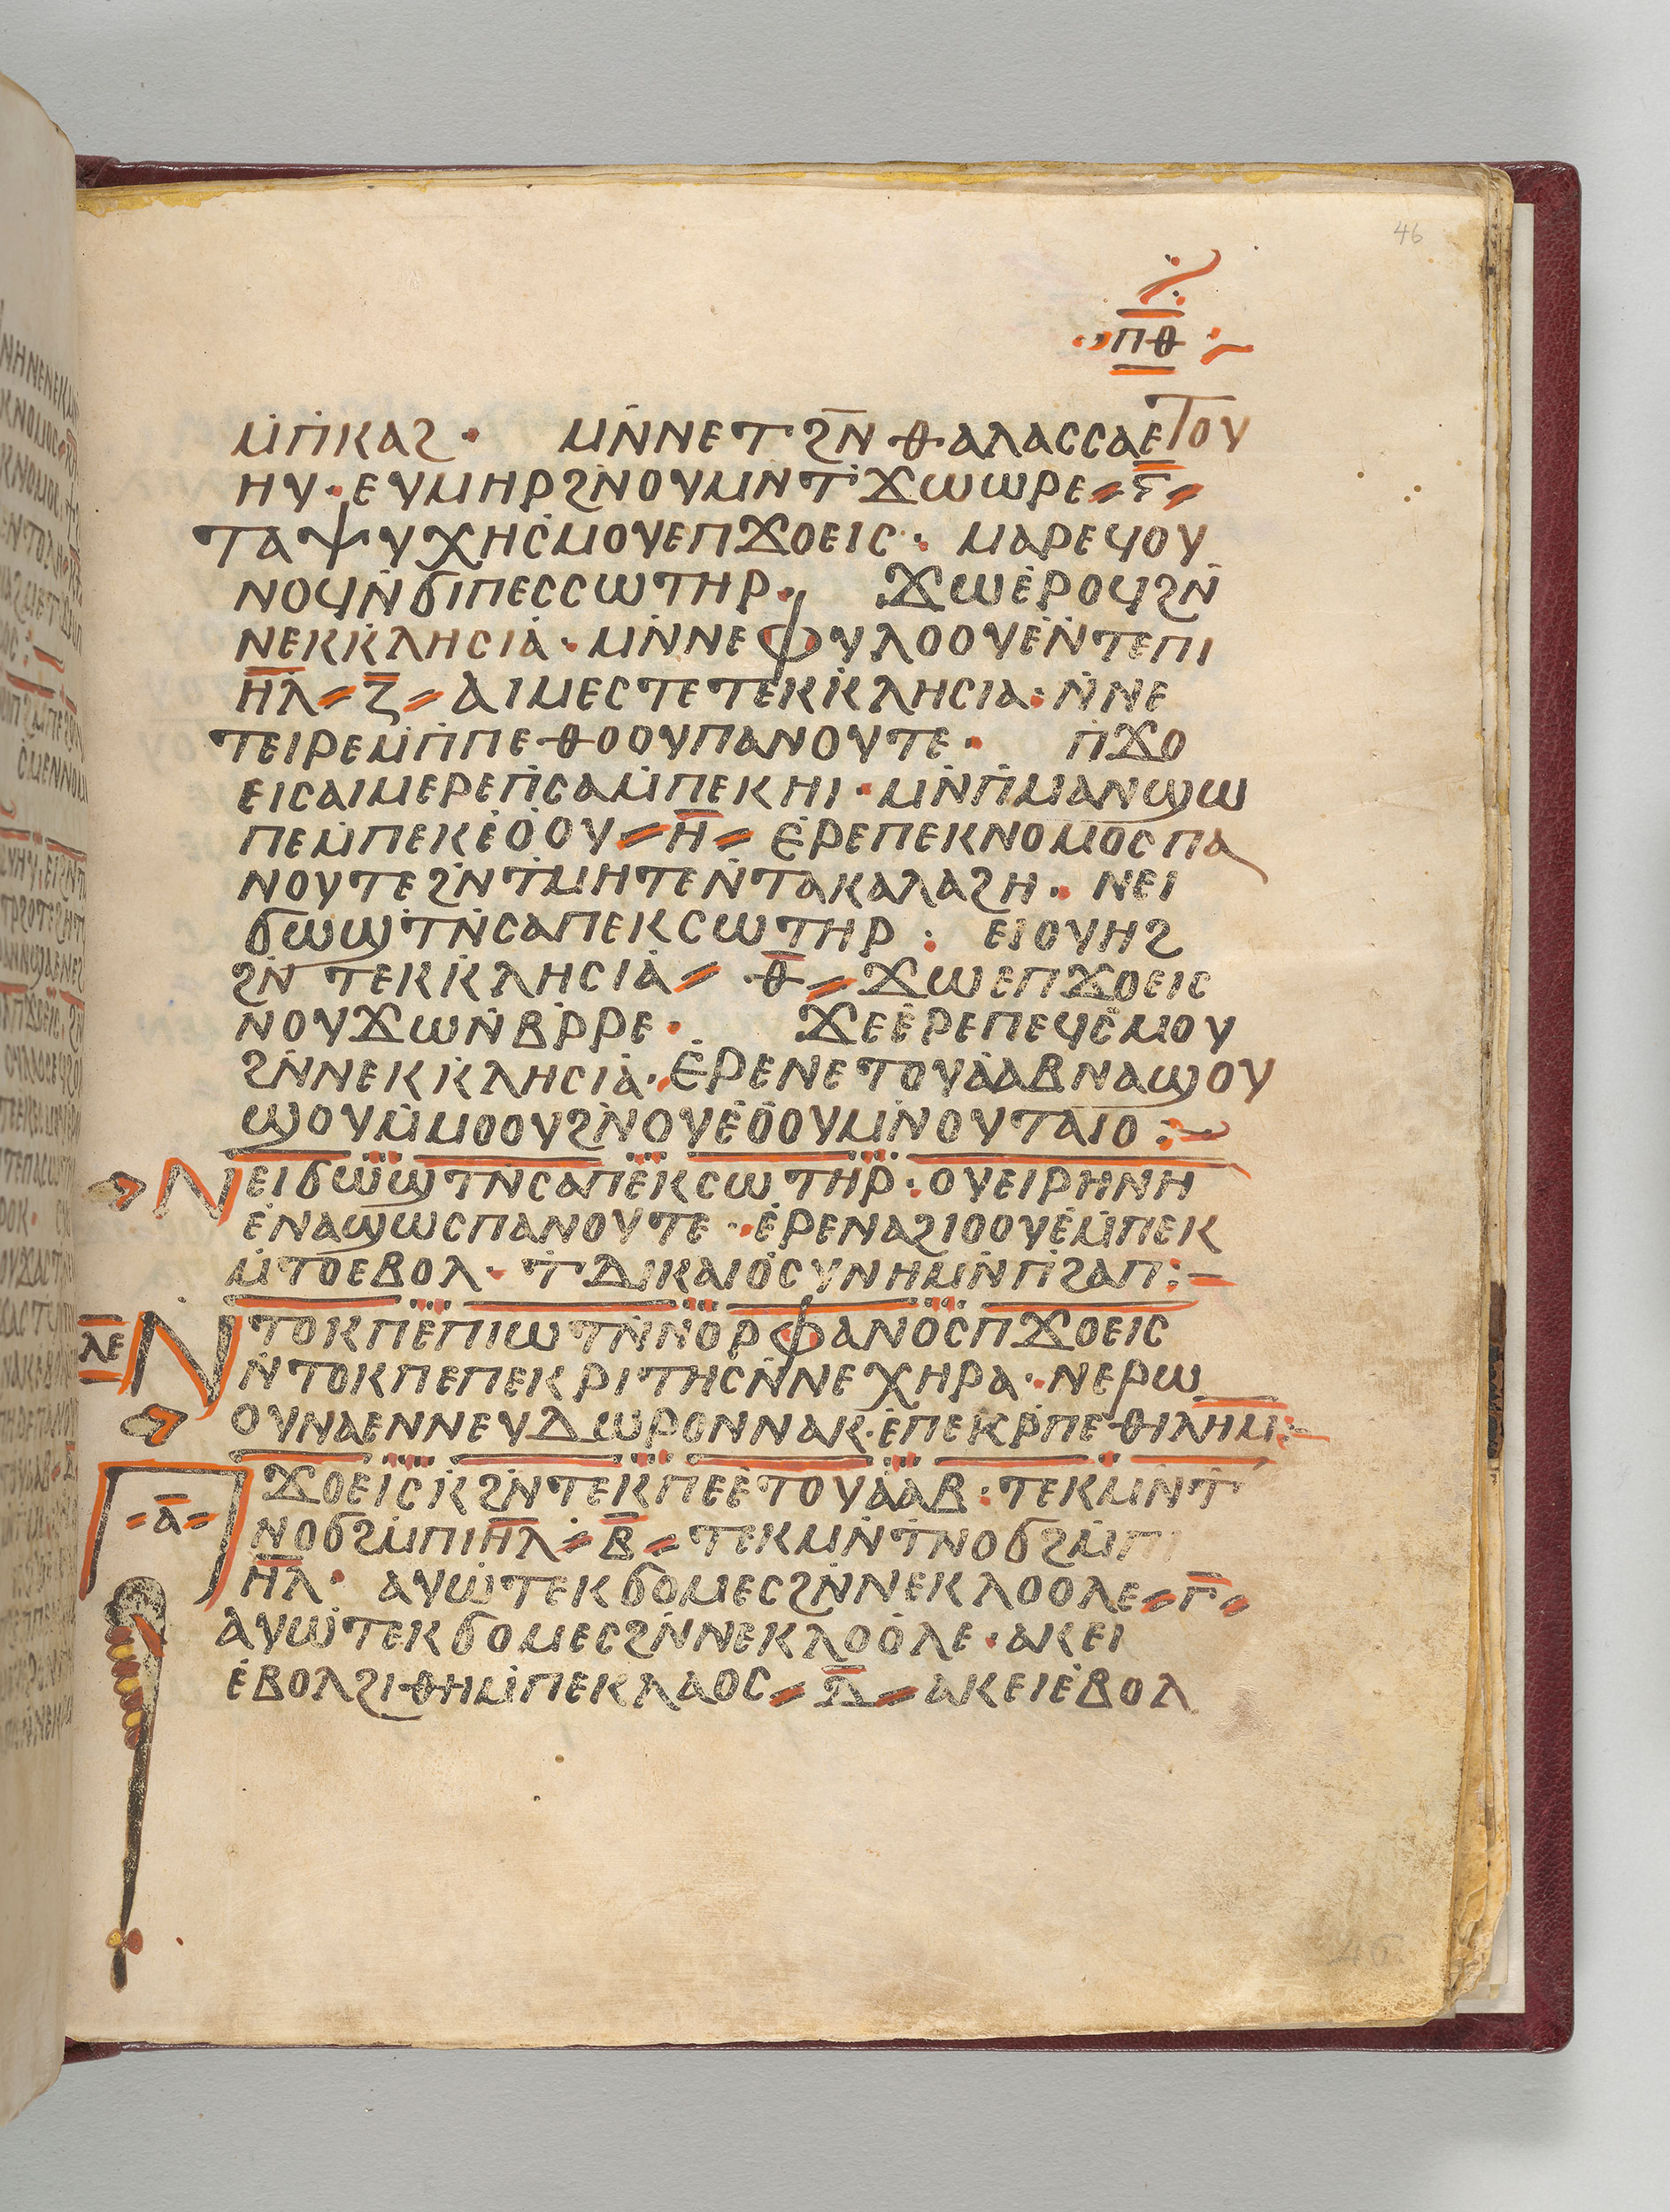 46
ⲡⲑ
ⲙ̇ⲡ̇ⲕⲁϩ · ⲙⲛ̇ⲛⲉⲧϩⲛ̄ⲑⲁⲗⲁⲥⲥⲁⲉⲧⲟⲩ
ⲏⲩ · ⲉⲩⲙⲏⲣϩⲛ̇ⲟⲩⲙⲛⲧ̇ϫⲱⲱⲣⲉ ⸗ ⲋ̄ ⸗
ⲧⲁⲯⲩⲭⲏⲥ̇ⲙⲟⲩⲉⲡϫⲟⲉⲓⲥ : ⲙⲁⲣⲉϥⲟⲩ
ⲛⲟϥⲛ̇ϭⲓⲡⲉⲥⲥⲱⲧⲏⲣ · ϫⲱⲉ̇ⲣⲟϥϩⲛ̇
ⲛⲉⲕⲕ̇ⲗⲏⲥⲓⲁ̇ · ⲙⲛ̇ⲛⲉⲫⲩⲗⲟⲟⲩⲉ̇ⲛ̇ⲧⲉⲡⲓ
ⲏ̄ⲗ̄ ⸗ ⲍ̄ ⸗ ⲁⲓⲙⲉⲥⲧⲉⲧⲉⲕⲕ̇ⲗⲏⲥⲓⲁ · ⲛ̇ⲛⲉ
ⲧⲉⲓⲣⲉⲙ̇ⲡ̇ⲡⲉⲑⲟⲟⲩⲡⲁⲛⲟⲩⲧⲉ · ⲡ̇ϫⲟ
ⲉⲓⲥⲁⲓⲙⲉⲣⲉⲡ̇ⲥⲁⲙ̇ⲡⲉⲕⲏⲓ · ⲙⲛ̇ⲡ̇ⲙⲁⲛϣⲱ
ⲡⲉⲙ̇ⲡⲉⲕⲉ̇ⲟ̇ⲟⲩ ⸗ ⲏ̄ ⸗ ⲉ̇ⲣⲉⲡⲉⲕⲛⲟⲙⲟⲥⲡⲁ
ⲛⲟⲩⲧⲉϩⲛ̇ⲧ̇ⲙⲏⲧⲉⲛ̇ⲧⲁⲕⲁⲗⲁϩⲏ · ⲛⲉⲓ
ϭⲱϣⲧ̇ⲛ̇ⲥⲁⲡⲉⲕⲥⲱⲧⲏⲣ : ⲉⲓⲟⲩⲏϩ
ϩⲛ̇ⲧⲉⲕⲕ̇ⲗⲏⲥⲓⲁ̇ ⸗ ⲑ̄ ⸗ ϫⲱⲉⲡϫⲟⲉⲓⲥ
ⲛⲟⲩϫⲱⲛ̇ⲃⲣ̇ⲣⲉ · ϫⲉⲉ̇ⲣⲉⲡⲉϥⲥ̇ⲙⲟⲩ
ϩⲛ̇ⲛⲉⲕⲕ̇ⲗⲏⲥⲓⲁ̇ · ⲉ̇ⲣⲉⲛⲉⲧⲟⲩⲁ̇ⲁⲃⲛⲁϣⲟⲩ
ϣⲟⲩⲙ̇ⲙⲟⲟⲩϩⲛ̇ⲟⲩⲉ̇ⲟ̇ⲟⲩⲙⲛ̇ⲟⲩⲧⲁⲓⲟ :~
ⲛⲉⲓϭⲱϣⲧⲛ̇ⲥⲁⲡⲉⲕⲥⲱⲧⲏⲣ · ⲟⲩⲉⲓⲣⲏⲛⲏ
ⲉ̇ⲛⲁϣⲱⲥⲡⲁⲛⲟⲩⲧⲉ · ⲉ̇ⲣⲉⲛⲁϩⲓⲟⲟⲩⲉ̇ⲙ̇ⲡⲉⲕ
ⲙ̇ⲧⲟⲉⲃⲟⲗ · ⲧ̇ⲇⲓⲕⲁⲓⲟ̇ⲥⲩⲛⲏⲙⲛ̇ⲡ̇ϩⲁⲡ :⁓
ⲗ̄ⲉ̄ ⲛ̇ⲧⲟⲕⲡⲉⲡⲓⲱⲧⲛ̇ⲛⲟⲣⲫⲁⲛⲟⲥⲡϫⲟⲉⲓⲥ
ⲛ̇ⲧⲟⲕⲡⲉⲡⲉⲕⲣⲓⲧⲏⲥⲛ̇ⲛⲉⲭⲏⲣⲁ · ⲛⲉⲣⲱ
ⲟⲩⲛⲁⲉⲛⲛⲉⲩⲇⲱⲣⲟⲛⲛⲁⲕ · ⲉ̇ⲡⲉⲕⲣ̇ⲡⲉⲑⲓⲗ̄ⲏ̄ⲙ̄ :⁓
ⲡϫⲟⲉⲓⲥⲕϩⲛ̇ⲧⲉⲕⲡⲉⲉ̇ⲧⲟⲩⲁ̇ⲁⲃ : ⲧⲉⲕⲙⲛ̇ⲧ
⸗ ⲁ̄ ⸗ ⲛⲟϭϩⲙ̇ⲡⲓⲏ̄ⲗ̄ ⸗ ⲃ̄ ⸗ ⲧⲉⲕⲙⲛ̇ⲧ̇ⲛⲟϭϩⲙ̇ⲡⲓ
ⲏ̄ⲗ̄ · ⲁⲩⲱ̇ⲧⲉⲕϭⲟⲙⲉⲥϩⲛ̇ⲛⲉⲕⲗⲟⲟⲗⲉ ⸗ ⲅ̄ ⸗
ⲁⲩⲱ̇ⲧⲉⲕϭⲟⲙⲉⲥϩⲛ̇ⲛⲉⲕⲗⲟⲟ̇ⲗⲉ · ⲁⲕⲉⲓ
ⲉ̇ⲃⲟⲗϩⲓⲑⲏⲙ̇ⲡⲉⲕⲗⲁⲟⲥ ⸗ ⲇ̄ ⸗ ⲁⲕⲉⲓⲉ̇ⲃⲟⲗ